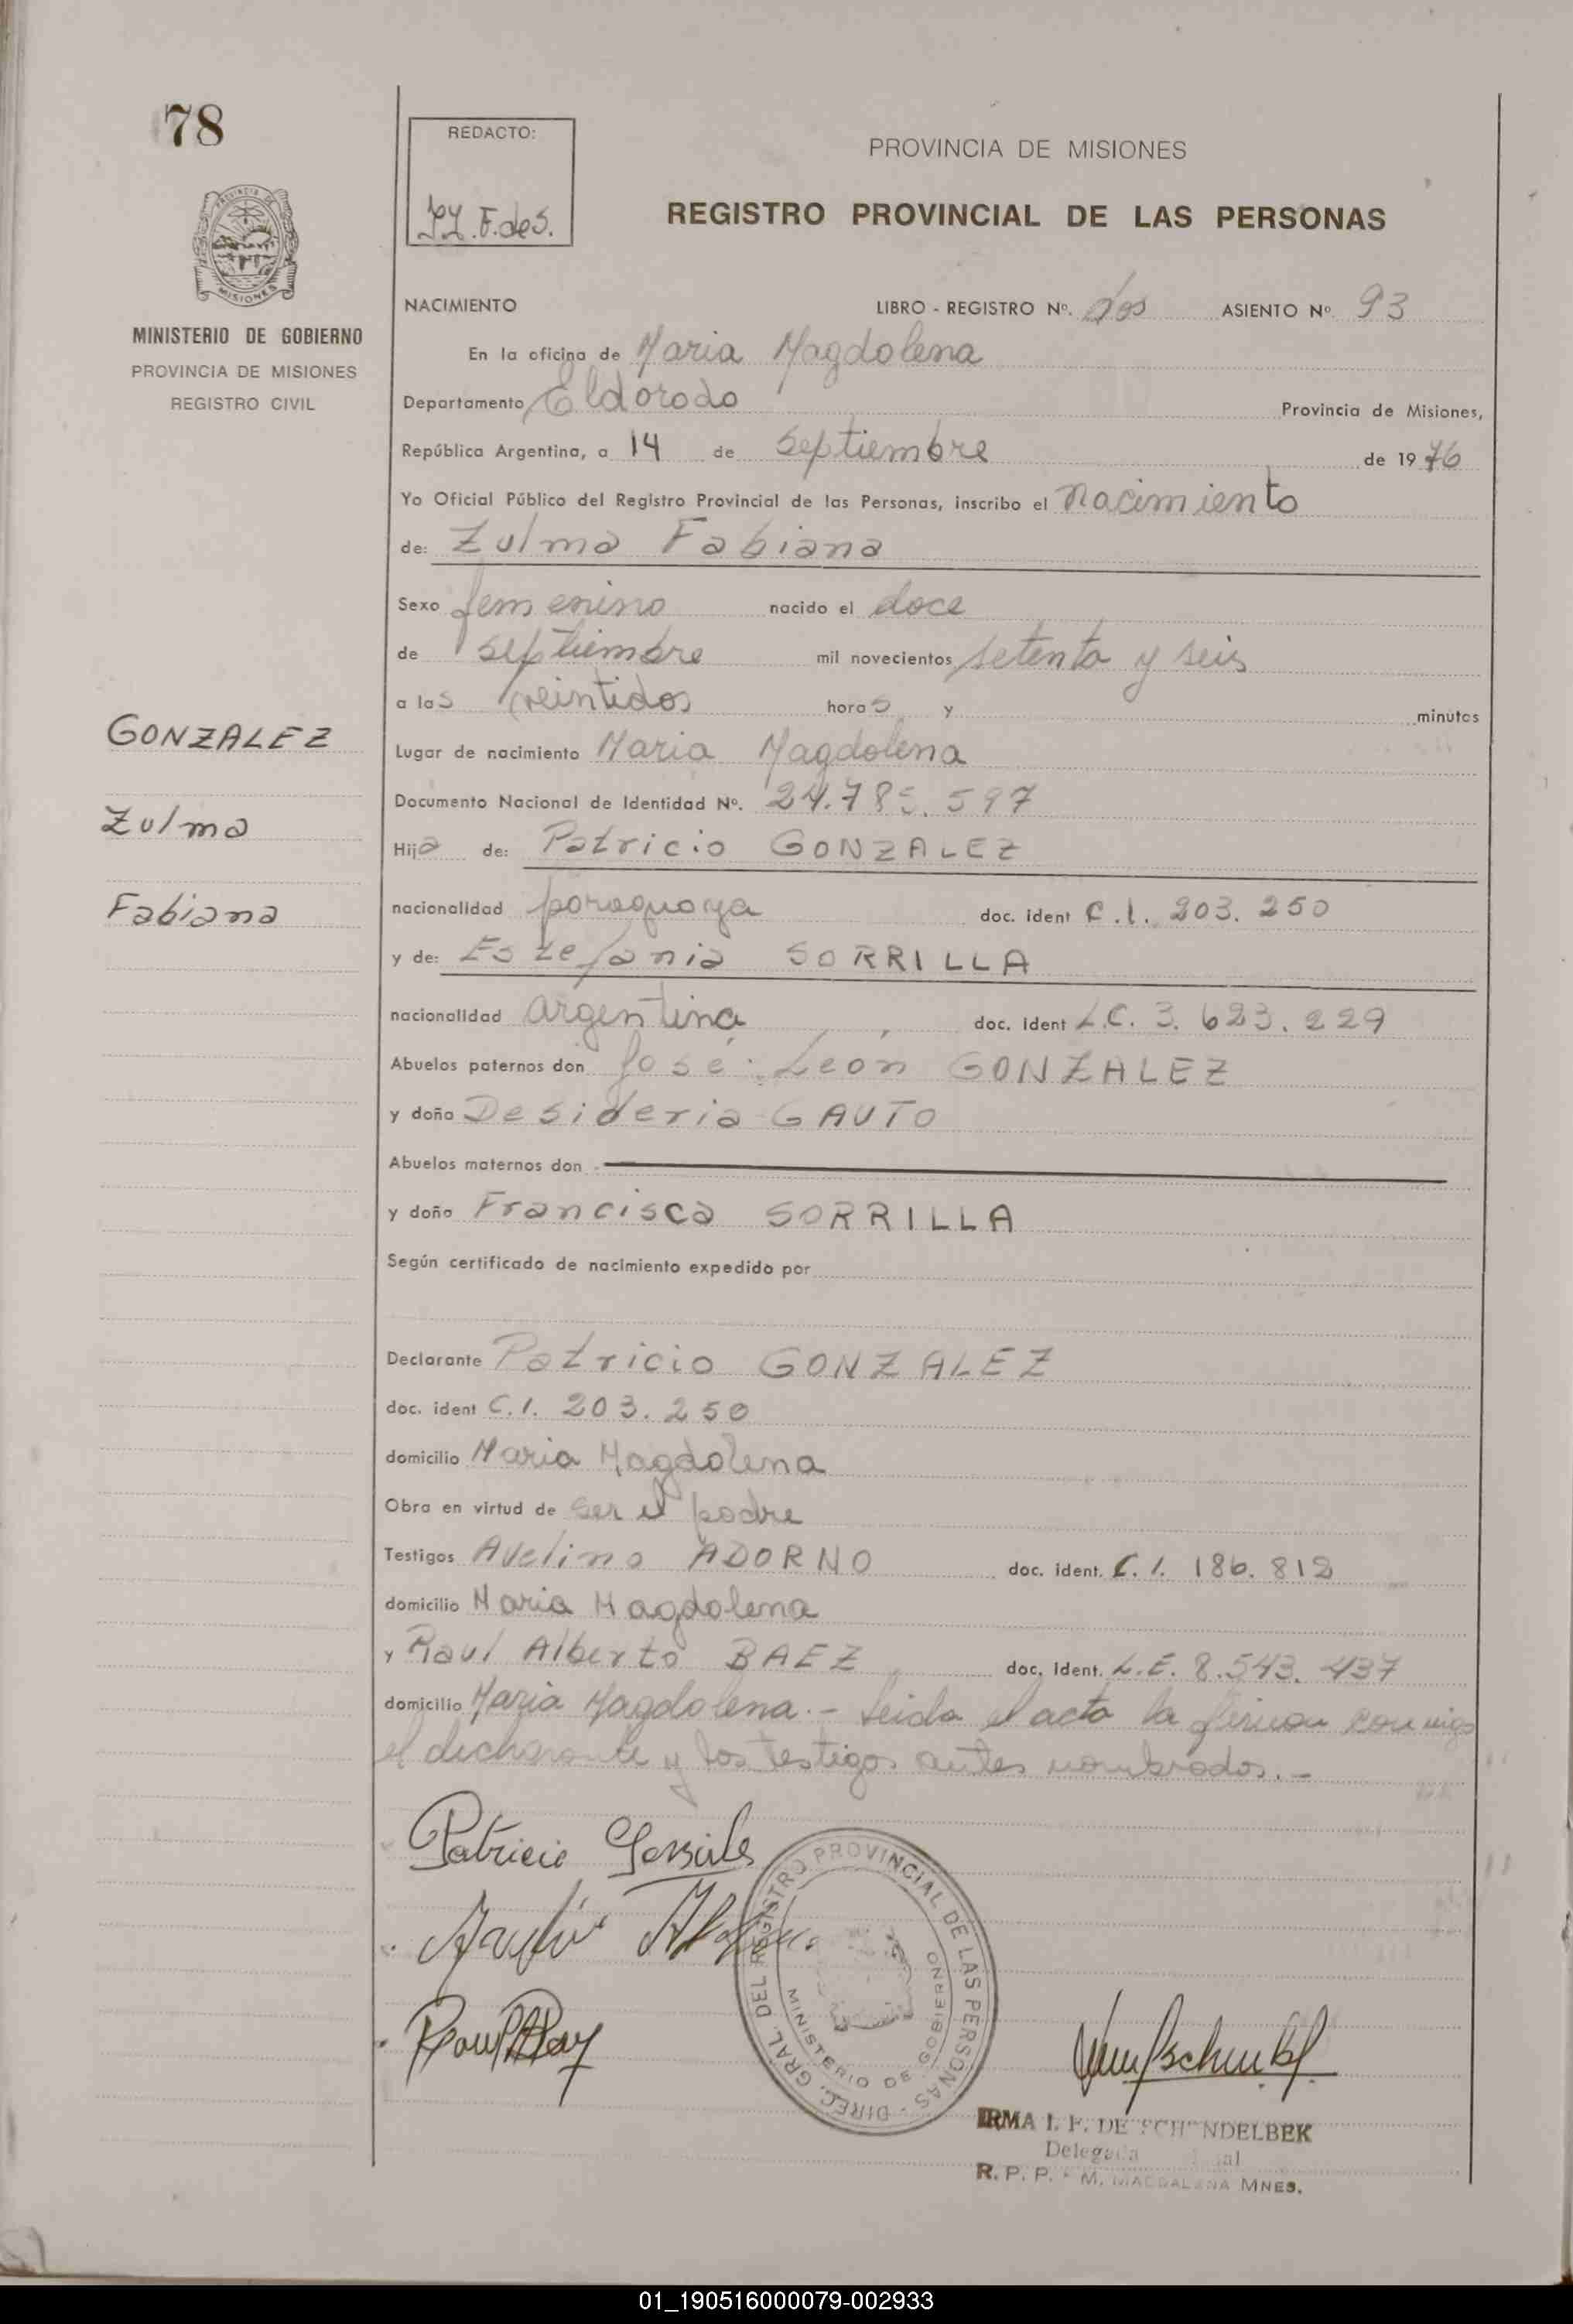 78
REDACTO:
I.F.deS.
PROVINCIA DE MISIONES
REGISTRO PROVINCIAL DE LAS PERSONAS
MISIONES
MINISTERIO DE GOBIERNO
PROVINCIA DE MISIONES
REGISTRO CIVIL
NACIMIENTO LIBRO - REGISTRO Nº. dos ASIENTO Nº. 93
En la oficina de Maria Magdalena
Departamento Eldorado Provincia de Misiones,
República Argentina, a 14 de septiembre de 1976
Yo Oficial Público del Registro Provincial de las Personas, inscribo el nacimiento
de: Zulma Fabiana
Sexo femenino nacido el doce
de septiembre mil novecientos setenta y seis
a las veintidos horas y minutos
GONZALEZ
Zulma
Fabiana
Lugar de nacimiento Maria Magdalena
Documento Nacional de Identidad Nº. 24.785.597
Hija de: Patricio GONZALEZ
nacionalidad paraguaya doc. ident C.I. 203.250
y de: Estefania SORRILLA
nacionalidad argentina doc. ident L.C. 3.623.229
Abuelos paternos don José León GONZALEZ
y doña Desideria GAUTO
Abuelos maternos don
y doña Francisca SORRILLA
Según certificado de nacimiento expedido por
Declarante Patricio GONZALEZ
doc. ident C.I. 203.250
domicilio Maria Magdalena
Obra en virtud de ser el padre
Testigos Avelino ADORNO doc. ident. C.I. 186.812
domicilio Maria Magdalena
y Raul Alberto BAEZ doc. ident. L.E. 8.543.437
domicilio Maria Magdalena.- Leida el acta la firman conmigo
el declarante y los testigos antes nombrados.-
Patricio Gonzales
DIREC. GRAL. DEL REGISTRO PROVINCIAL DE LAS PERSONAS
MINISTERIO DE GOBIERNO
IRMA I. F. DE SCHENDELBEK
Delegada
R. P. P. - M. MAGDALENA MNES.
01_190516000079-002933